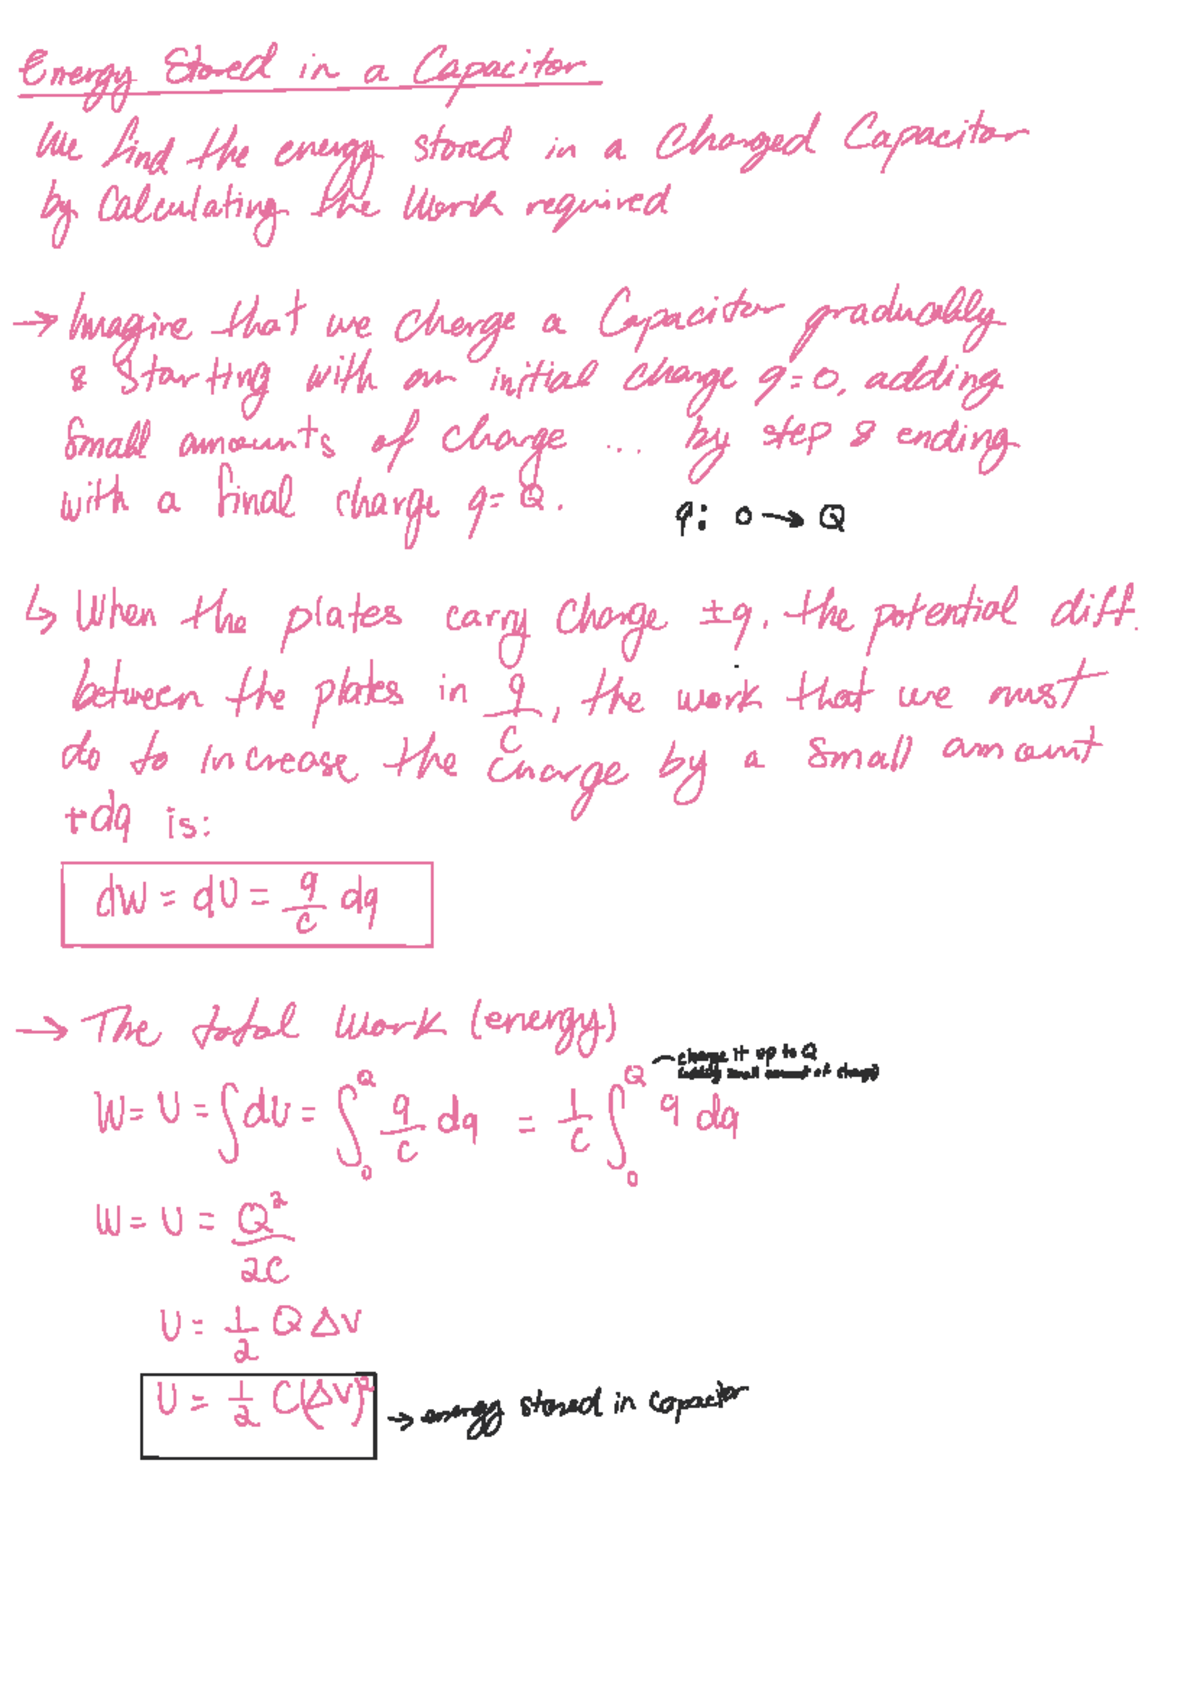 Energy Stored in a Capacitor
We find the energy stored in a Charged Capacitor
by Calculating the Work required
→ Imagine that we charge a Capacitor graducably
& starting with an initial charge q=0, adding
Small amounts of charge ... by step & ending
with a final charge q= Q.
q: 0 → Q
↳ When the plates carry Charge ±q, the potential diff.
between the plates in q/C, the work that we must
do to increase the charge by a small amount
+dq is:
dW = dU = q/C dq
→ The total Work (energy)
charge it up to Q
(adding small amount of charge)
W= U = ∫dU = ∫₀^Q q/C dq = 1/C ∫₀^Q q dq
W= U = Q²/2C
U= 1/2 Q ΔV
U = 1/2 C(ΔV)² → energy stored in capactor